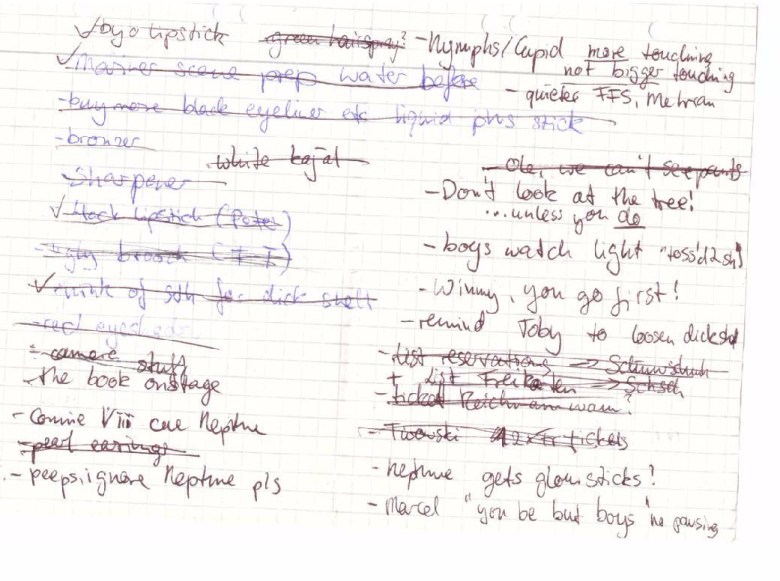 ✓byo lipstick
green hairspray?
✓Mariner scene prep water before
-buy more black eyeliner etc liquid plus stick
-bronzer
-white kajal
-Sharpener
✓black lipstick (Peter)
-ugly brooch
✓think of sth for dick stell
-red eyed
-camera stuff
-the book onstage
-Connie VIII cue Neptune
-pearl earrings
-peeps, ignore Neptune pls
-Nymphs/Cupid more touching
not bigger touching
-quieter FFS,
Ole, we can't see pants
-Don't look at the tree!
...unless you do
-boys watch light "toss'd 2 sh"
-Winny, you go first!
-remind Toby to loosen
-List reservations →
+ List Freikarten →
-ticket Reichmann wann?
-Twouski 42 tickets
-neptune gets glowsticks?
-Marcel "you be but boys" no pausing